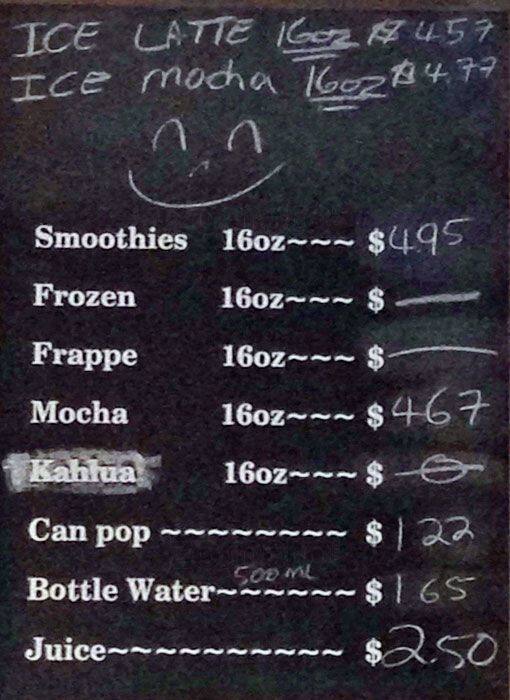 ICE LATTE 16oz $4.57
ICE mocha 16oz $4.77
Smoothies 16oz~~~ $4.95
Frozen 16oz~~~ $ —
Frappe 16oz~~~ $ —
Mocha 16oz~~~ $4 67
Kahlua 16oz~~~ $
Can pop ~~~~~~~~~ $1 22
500 ML
Bottle Water~~~~~~ $1 65
Juice~~~~~~~~~~ $2.50